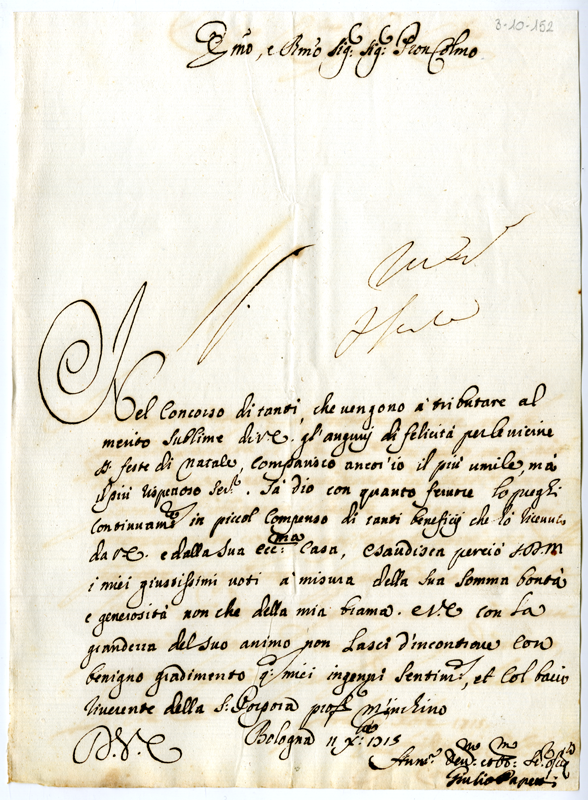 3-10-152
Emo, e Rmo Sig: Sig: Pron Colmo
Nel Concorso di tanti, che vengono à tributare al
merito sublime di V.E. gl'augurij di felicità per le vicine
Ste feste di Natale, comparisco ancor'io il più umile, mà
il più rispettoso Serre. Sà Dio con quanto fervore lo preghi
continuamte in piccol compenso di tanti beneficij che hò ricevuto
da V.E. e dalla sua eccma Casa, esaudisca perciò
i miei giustissimi voti à misura della sua somma bontà
e generosità non che della mia brama. e V.E. con la
grandezza del suo animo non lasci d'incontrare con
benigno gradimento qti miei ingenui sentimti, et col bacio
riverente della S. Porpora profte m'inchino
D. V. E.
Bologna 11 Xbre 1715
Devmo Obbmo
Giulio